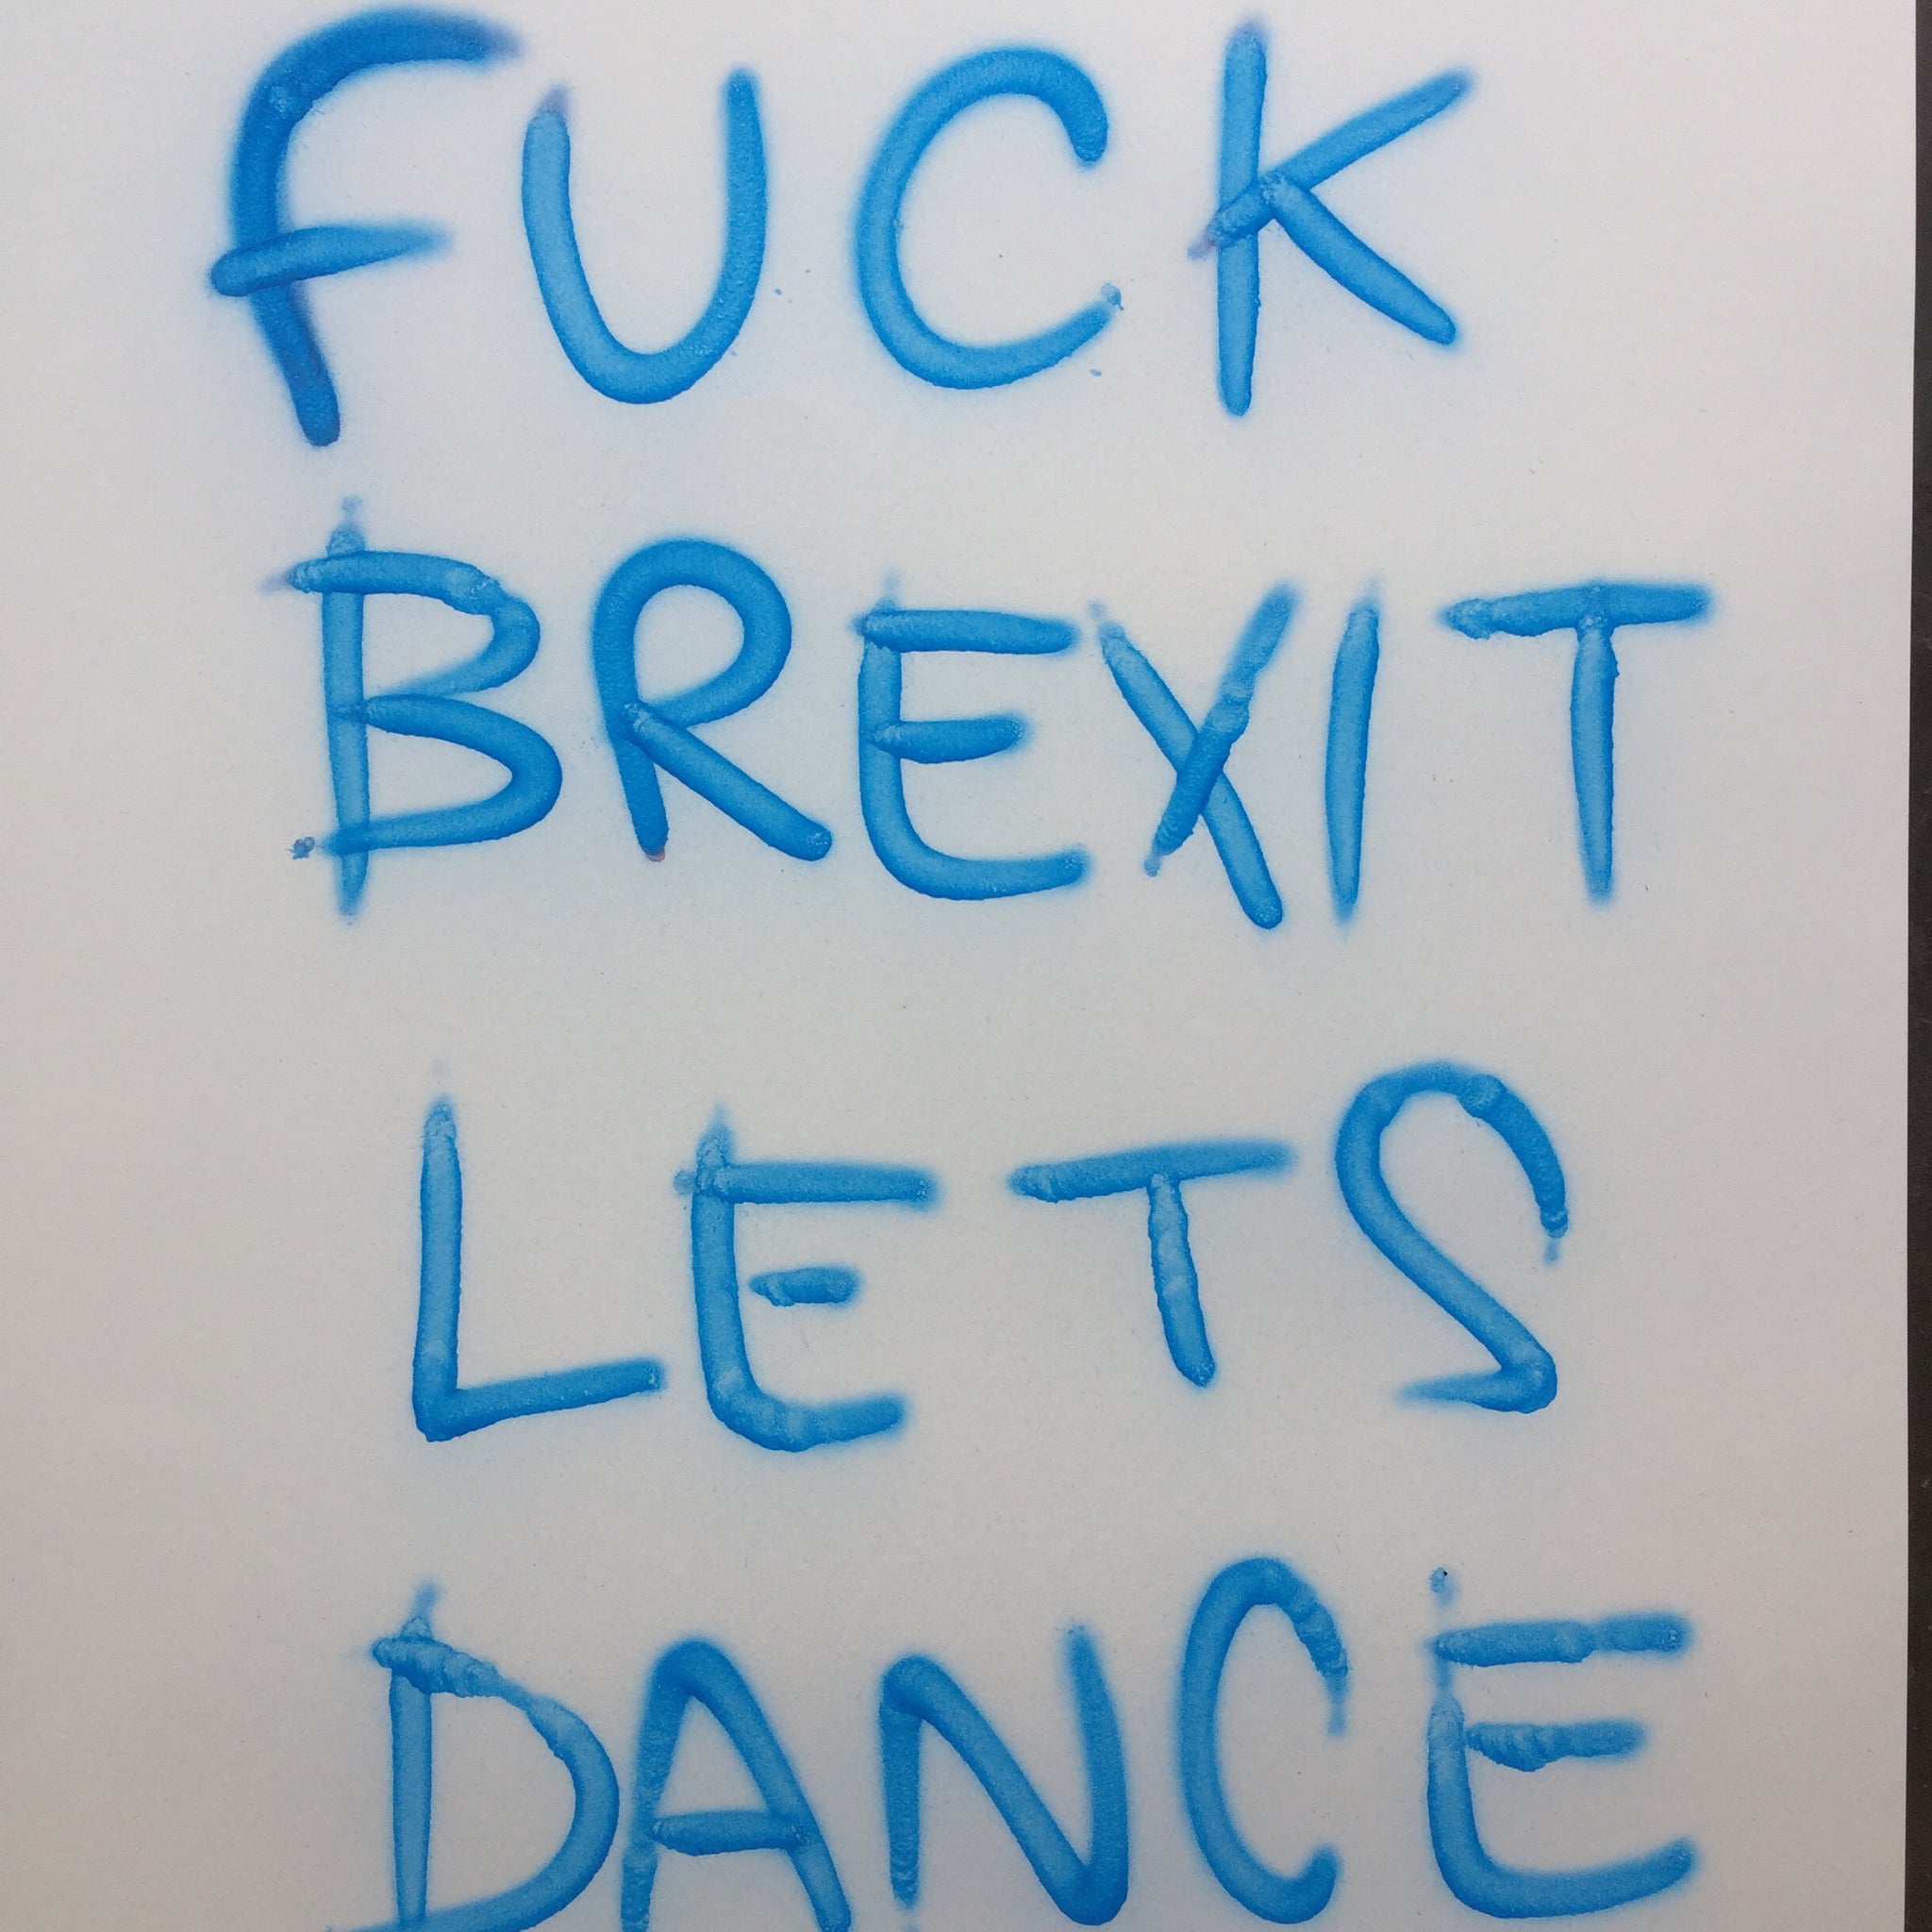 FUCK
BREXIT
LETS
DANCE